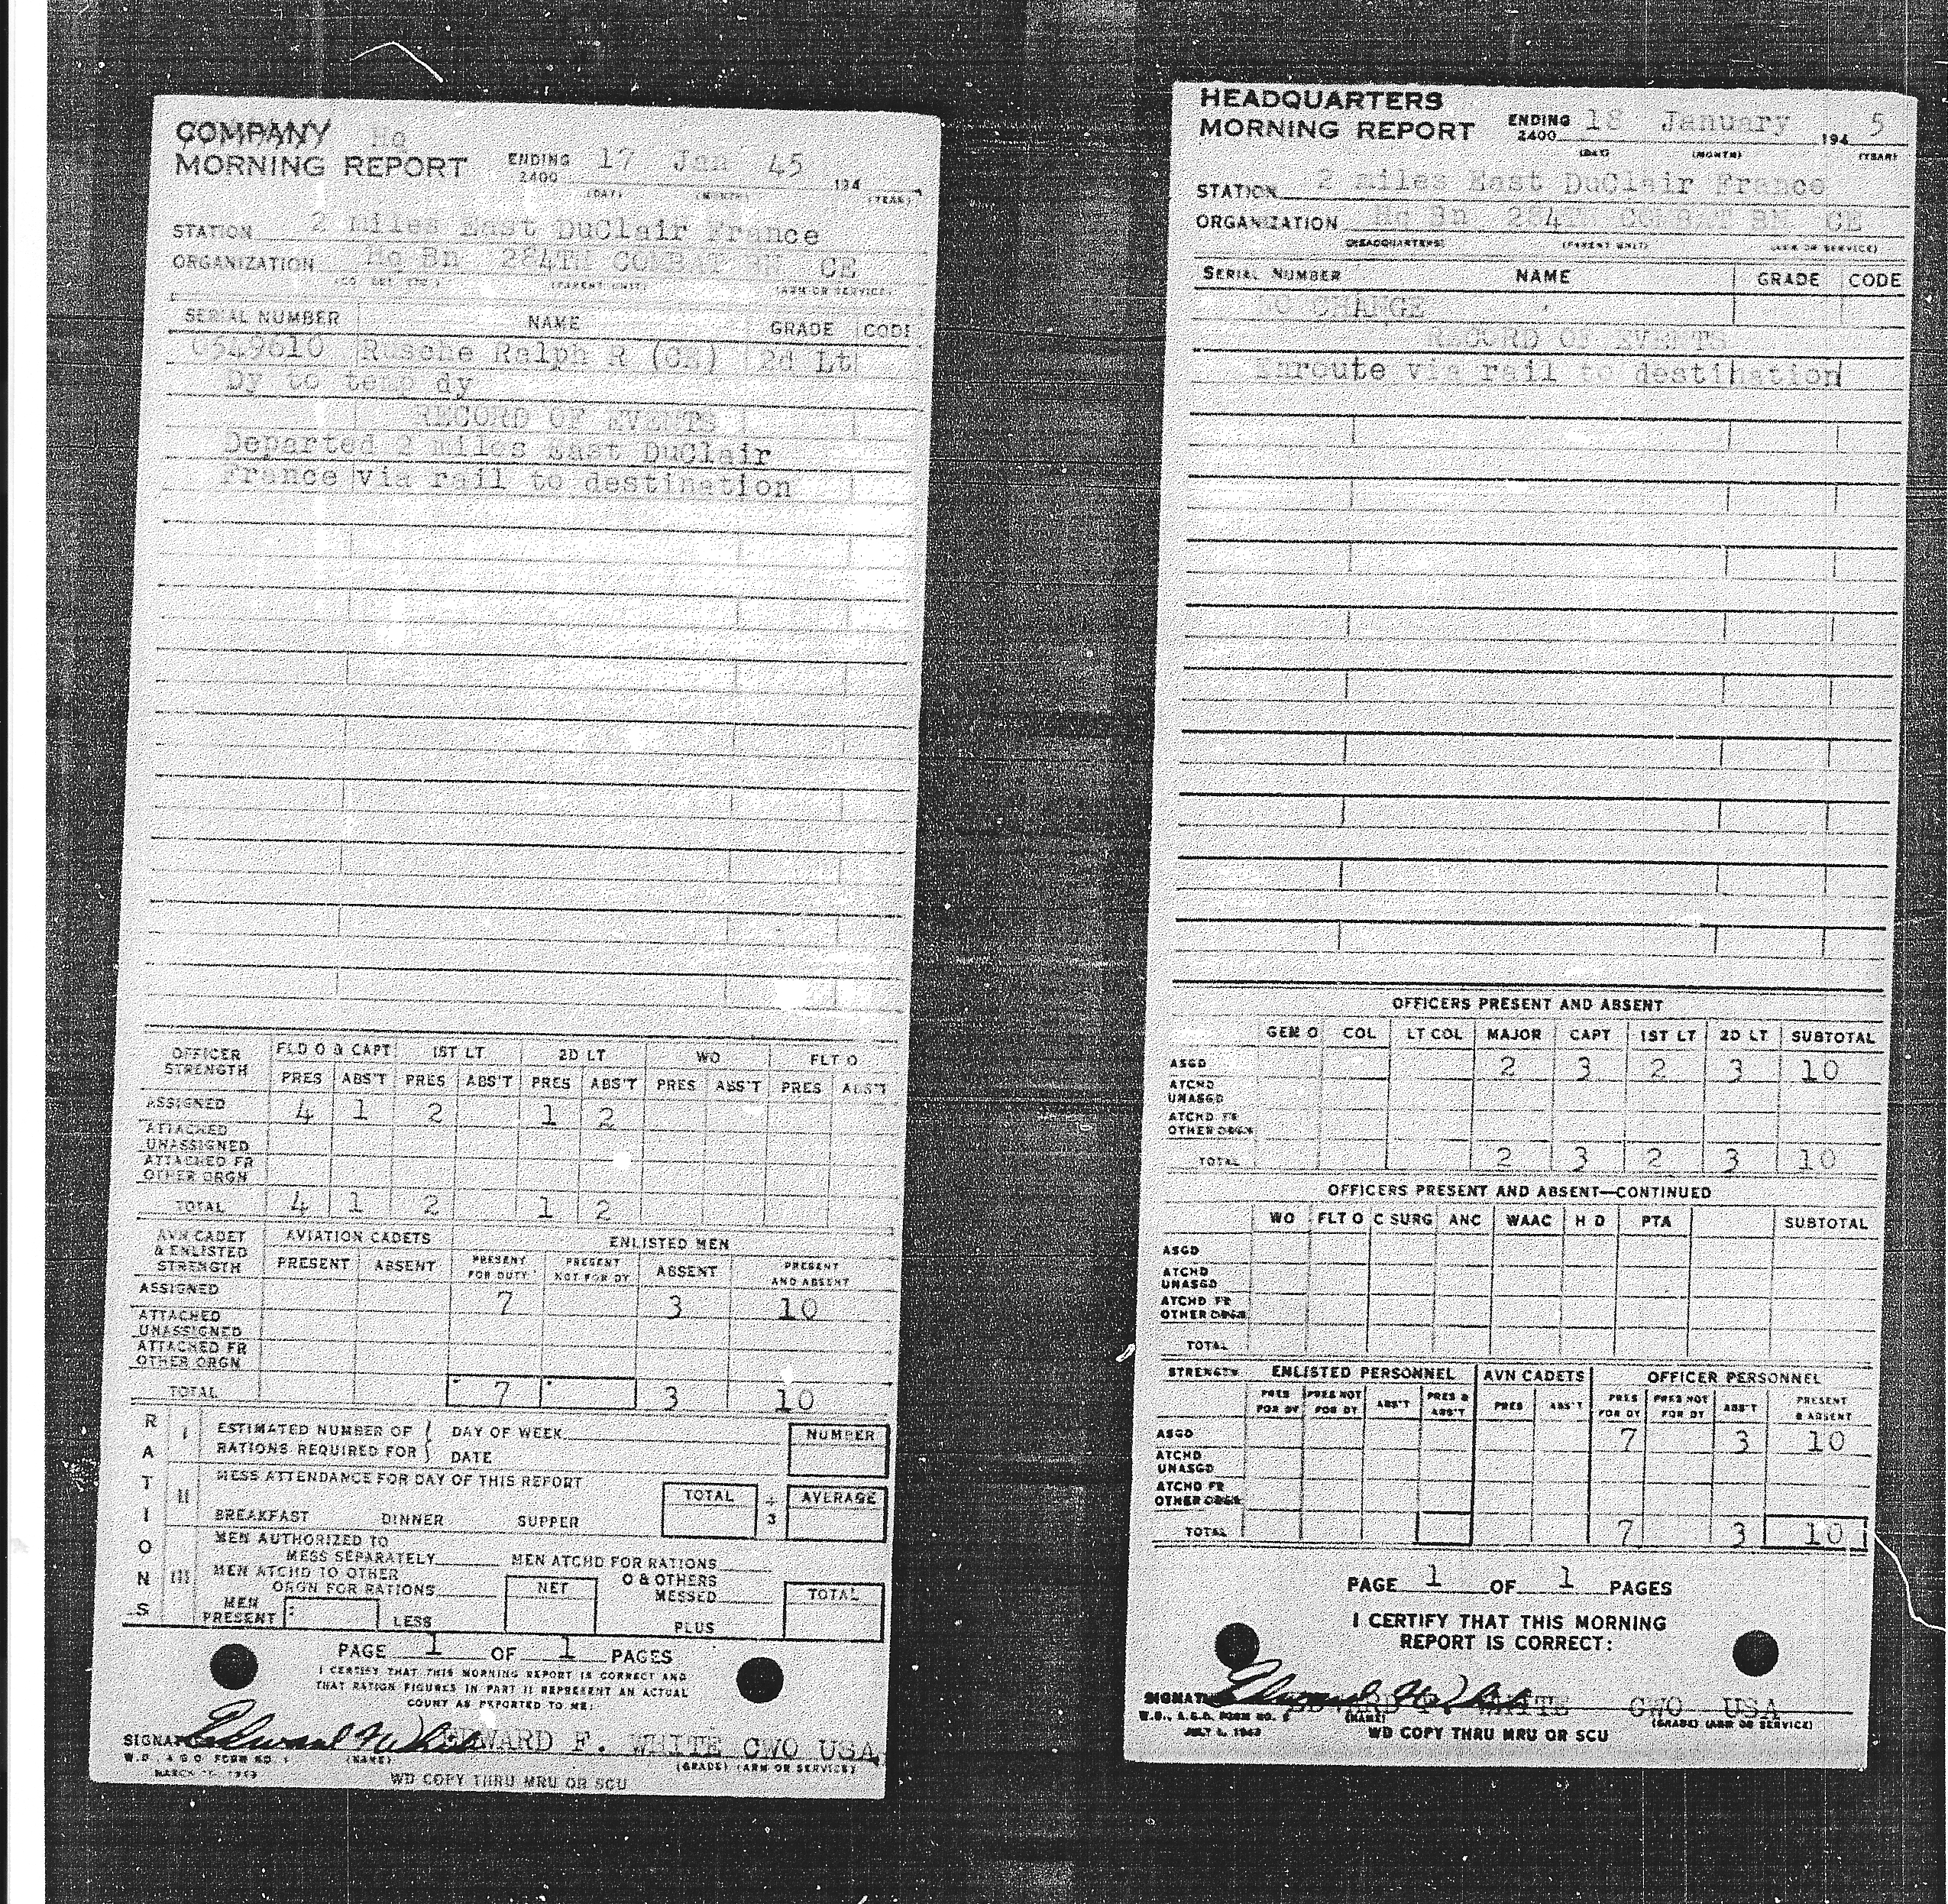 COMPANY Hq
MORNING REPORT ENDING 2400 17 Jan 45 194
(DAY) (MONTH) (YEAR)
STATION 2 miles East DuClair France
ORGANIZATION Hq Bn 284TH COMBAT BN CE
(PARENT UNIT) (ARM OR SERVICE)
SERIAL NUMBER NAME GRADE CODE
0549610 Rusche Ralph R (CE) 2d Lt
Dy to temp dy
RECORD OF EVENTS
Departed 2 miles East DuClair
France via rail to destination
OFFICER STRENGTH FLD O & CAPT 1ST LT 2D LT WO FLT O
PRES ABS'T PRES ABS'T PRES ABS'T PRES ABS'T PRES ABS'T
ASSIGNED 4 1 2 1 2
ATTACHED UNASSIGNED
ATTACHED FR OTHER ORGN
TOTAL 4 1 2 1 2
AVN CADET & ENLISTED STRENGTH AVIATION CADETS ENLISTED MEN
PRESENT ABSENT PRESENT FOR DUTY PRESENT NOT FOR DY ABSENT PRESENT AND ABSENT
ASSIGNED 7 3 10
ATTACHED UNASSIGNED
ATTACHED FR OTHER ORGN
TOTAL 7 3 10
RATIONS
I ESTIMATED NUMBER OF RATIONS REQUIRED FOR DAY OF WEEK DATE NUMBER
II MESS ATTENDANCE FOR DAY OF THIS REPORT
BREAKFAST DINNER SUPPER TOTAL ÷ 3 AVERAGE
III MEN AUTHORIZED TO MESS SEPARATELY MEN ATCHD FOR RATIONS
MEN ATCHD TO OTHER ORGN FOR RATIONS NET O & OTHERS MESSED TOTAL
MEN PRESENT LESS PLUS
PAGE 1 OF 1 PAGES
I CERTIFY THAT THIS MORNING REPORT IS CORRECT AND
THAT RATION FIGURES IN PART II REPRESENT AN ACTUAL
COUNT AS REPORTED TO ME:
SIGNATURE EDWARD F. WHITE CWO USA
(NAME) (GRADE) (ARM OR SERVICE)
W.D., A.G.O. FORM NO. 1
MARCH 1943
WD COPY THRU MRU OR SCU
HEADQUARTERS
MORNING REPORT ENDING 2400 18 January 194 5
(DAY) (MONTH) (YEAR)
STATION 2 miles East DuClair France
ORGANIZATION Hq Bn 284TH COMBAT BN CE
(HEADQUARTERS) (PARENT UNIT) (ARM OR SERVICE)
SERIAL NUMBER NAME GRADE CODE
NO CHANGE
RECORD OF EVENTS
Enroute via rail to destination
OFFICERS PRESENT AND ABSENT
GEN O COL LT COL MAJOR CAPT 1ST LT 2D LT SUBTOTAL
ASGD 2 3 2 3 10
ATCHD UNASGD
ATCHD FR OTHER ORGN
TOTAL 2 3 2 3 10
OFFICERS PRESENT AND ABSENT—CONTINUED
WO FLT O C SURG ANC WAAC H D PTA SUBTOTAL
ASGD
ATCHD UNASGD
ATCHD FR OTHER ORGN
TOTAL
STRENGTH ENLISTED PERSONNEL AVN CADETS OFFICER PERSONNEL
PRES FOR DY PRES NOT FOR DY ABS'T PRES & ABS'T PRES ABS'T PRES FOR DY PRES NOT FOR DY ABS'T PRESENT & ABSENT
ASGD 7 3 10
ATCHD UNASGD
ATCHD FR OTHER ORGN
TOTAL 7 3 10
PAGE 1 OF 1 PAGES
I CERTIFY THAT THIS MORNING
REPORT IS CORRECT:
SIGNATURE EDWARD F. WHITE CWO USA
(NAME) (GRADE) (ARM OR SERVICE)
W.D., A.G.O. FORM NO.
JULY 1943
WD COPY THRU MRU OR SCU